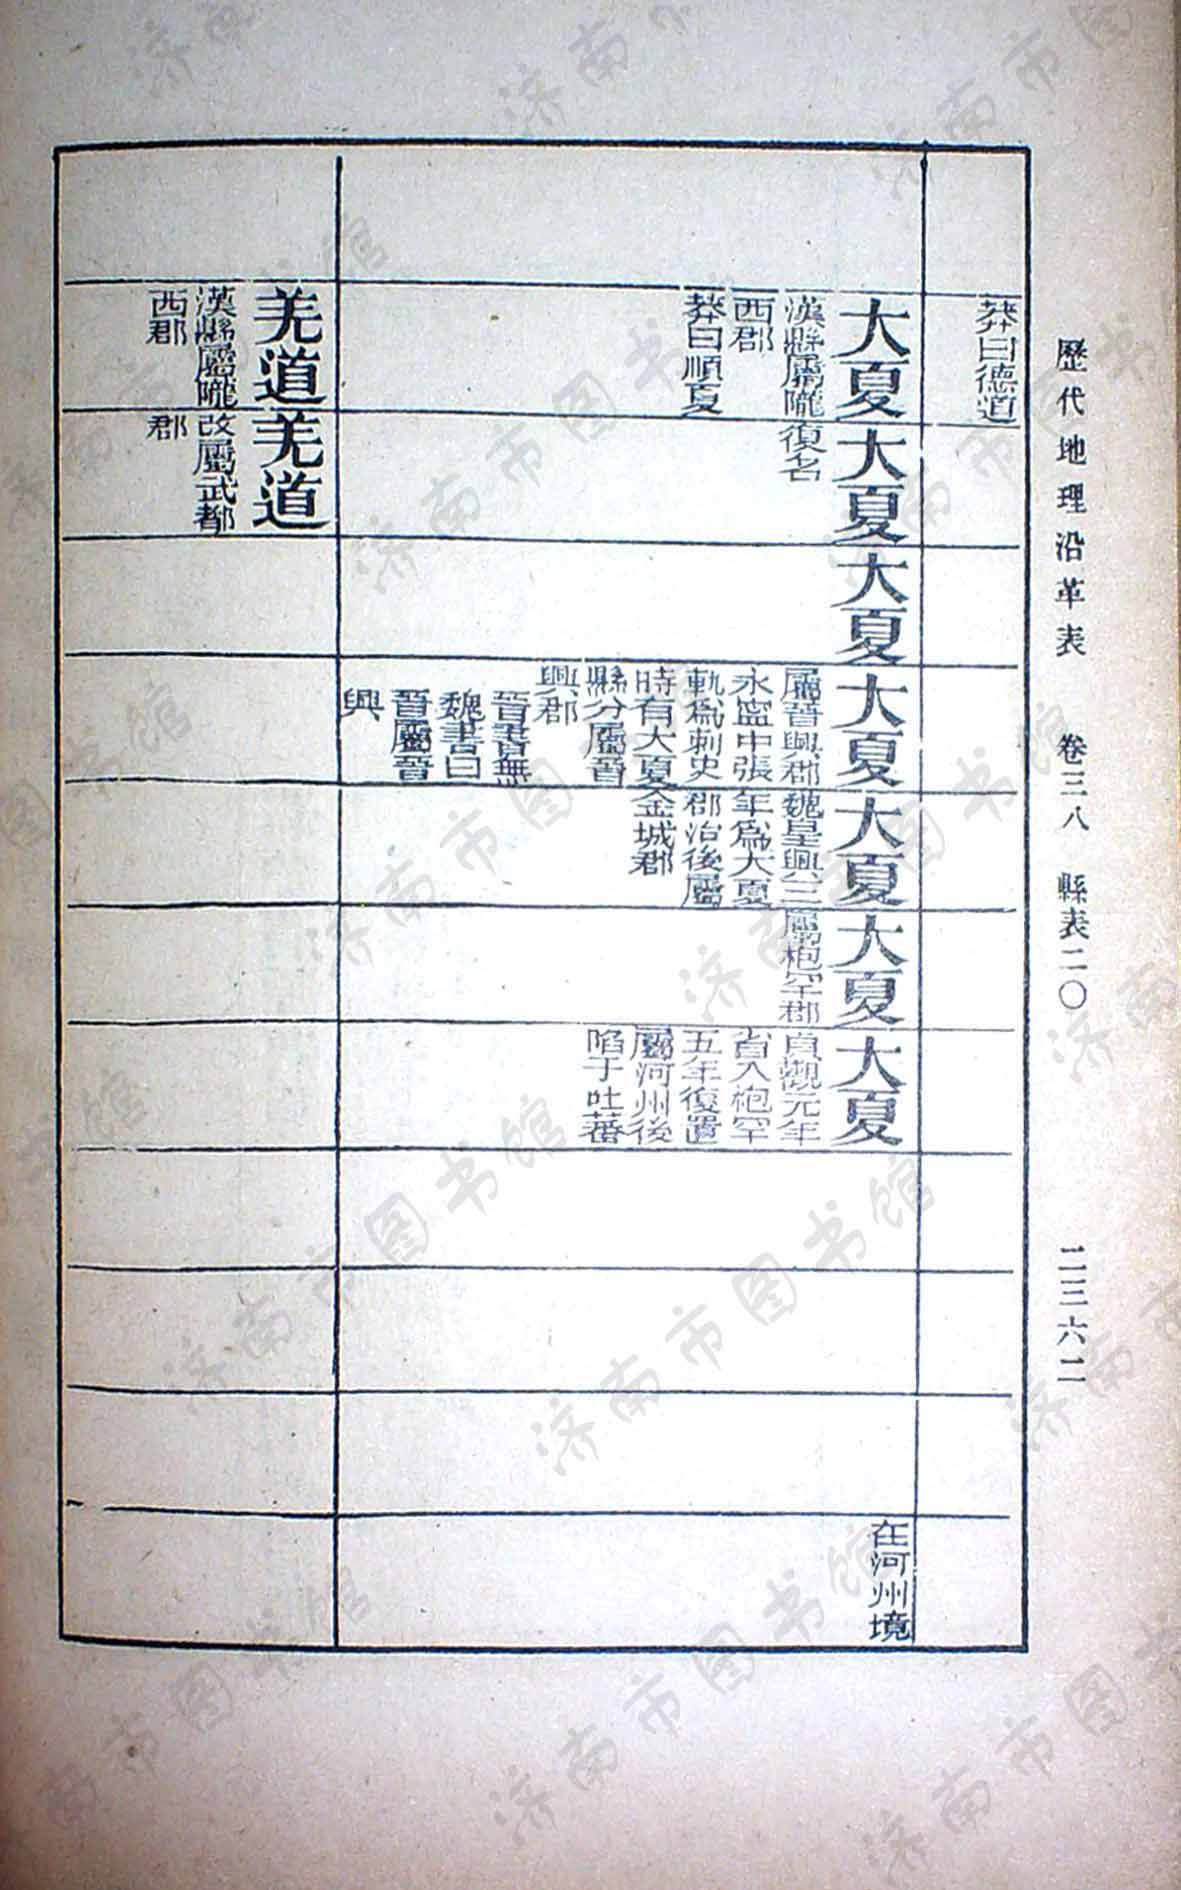 歷代地理沿革表　卷三八　縣表二〇　二三六二
莽曰德道
大夏
漢縣屬隴
西郡
莽曰順夏
大夏
復名
大夏
大夏
屬晉興郡
永寧中張
軌爲刺史
時有大夏
縣分屬晉
興郡
晉書無
魏書曰
晉屬晉
興
大夏
魏皇興三
年爲大夏
郡治後屬
金城郡
大夏
屬枹罕郡
大夏
貞觀元年
省入枹罕
五年復置
屬河州後
陷于吐蕃
在河州境
羌道
漢縣屬隴
西郡
羌道
改屬武都
郡
济南市图书馆